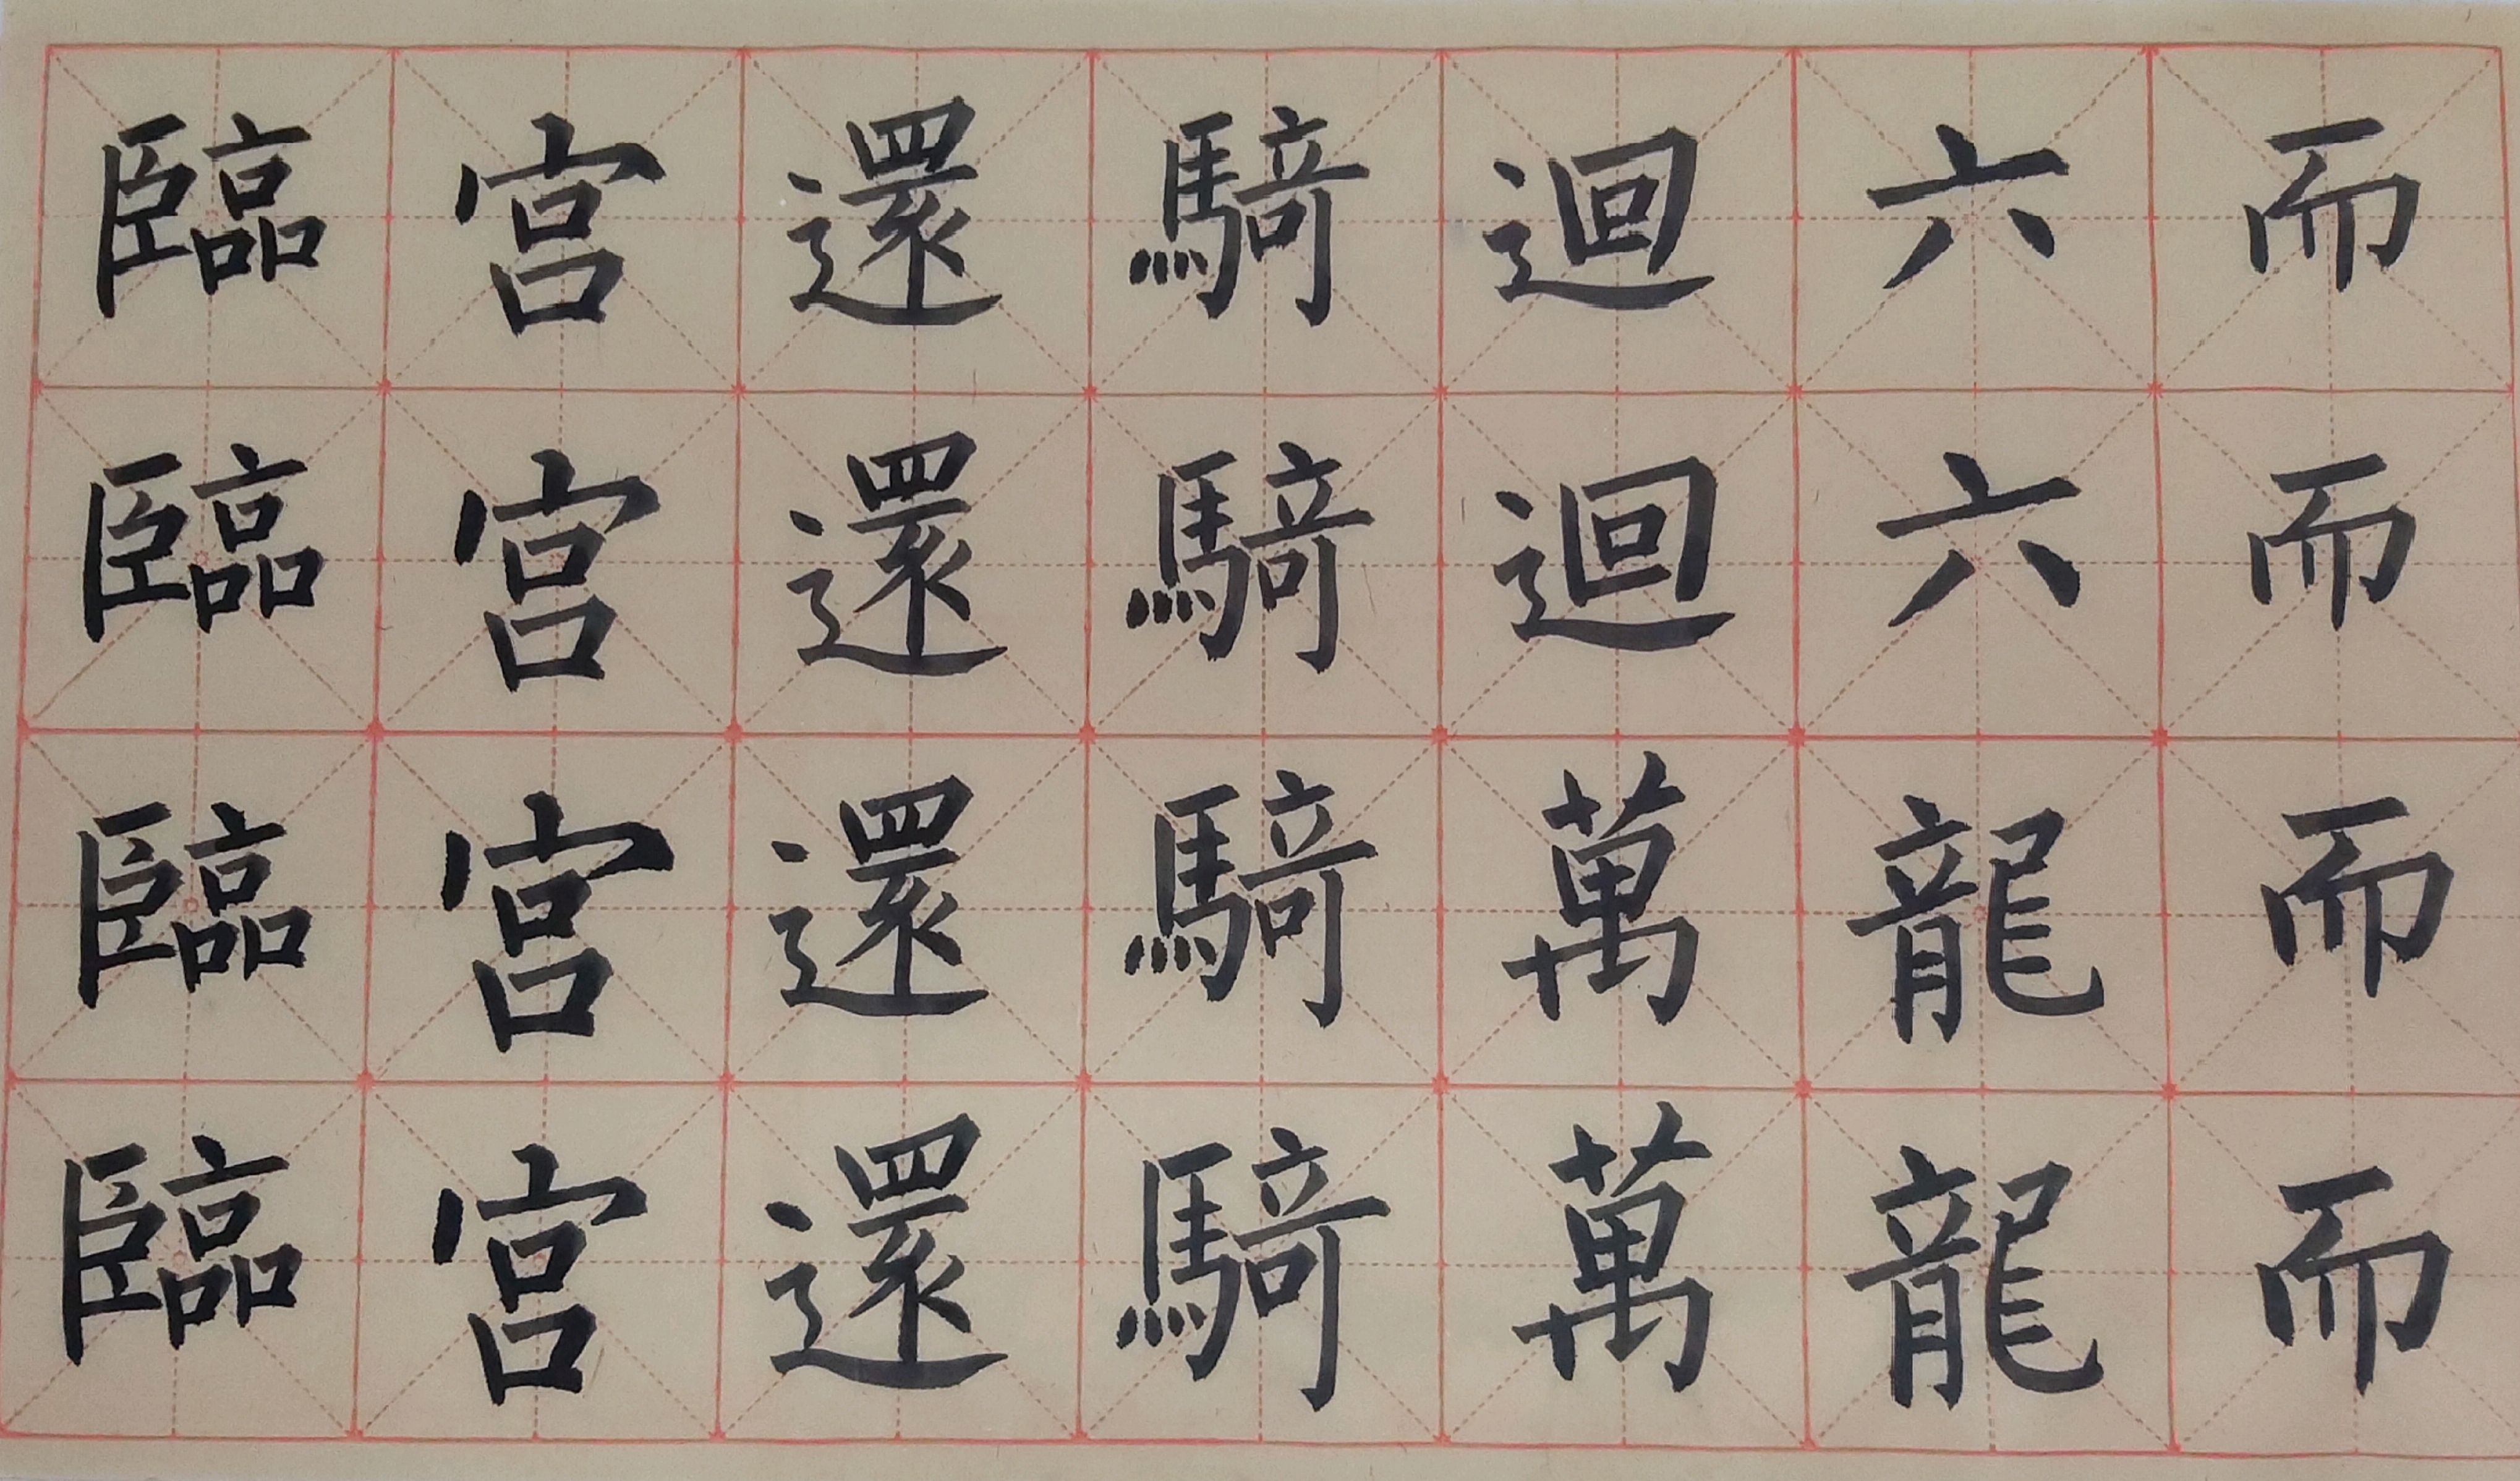 而而而而
六六龍龍
迴迴萬萬
騎騎騎騎
還還還還
宫宫宫宫
臨臨臨臨